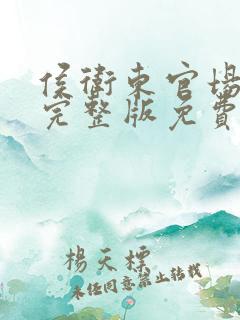 侯衛東官場
完整版免費
楊天標
未經同意禁止轉載